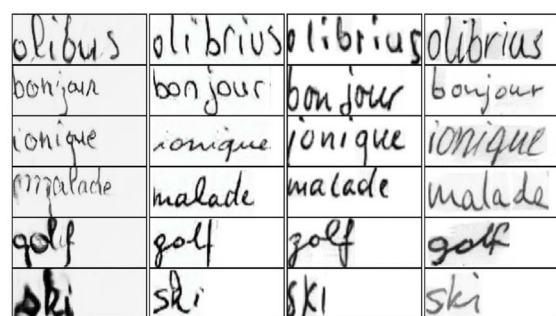 olibus olibrius olibrius olibrius
bonjour bonjour bonjour bonjour
ionique ionique ionique ionique
malade malade malade
golf golf golf golf
ski ski ski ski